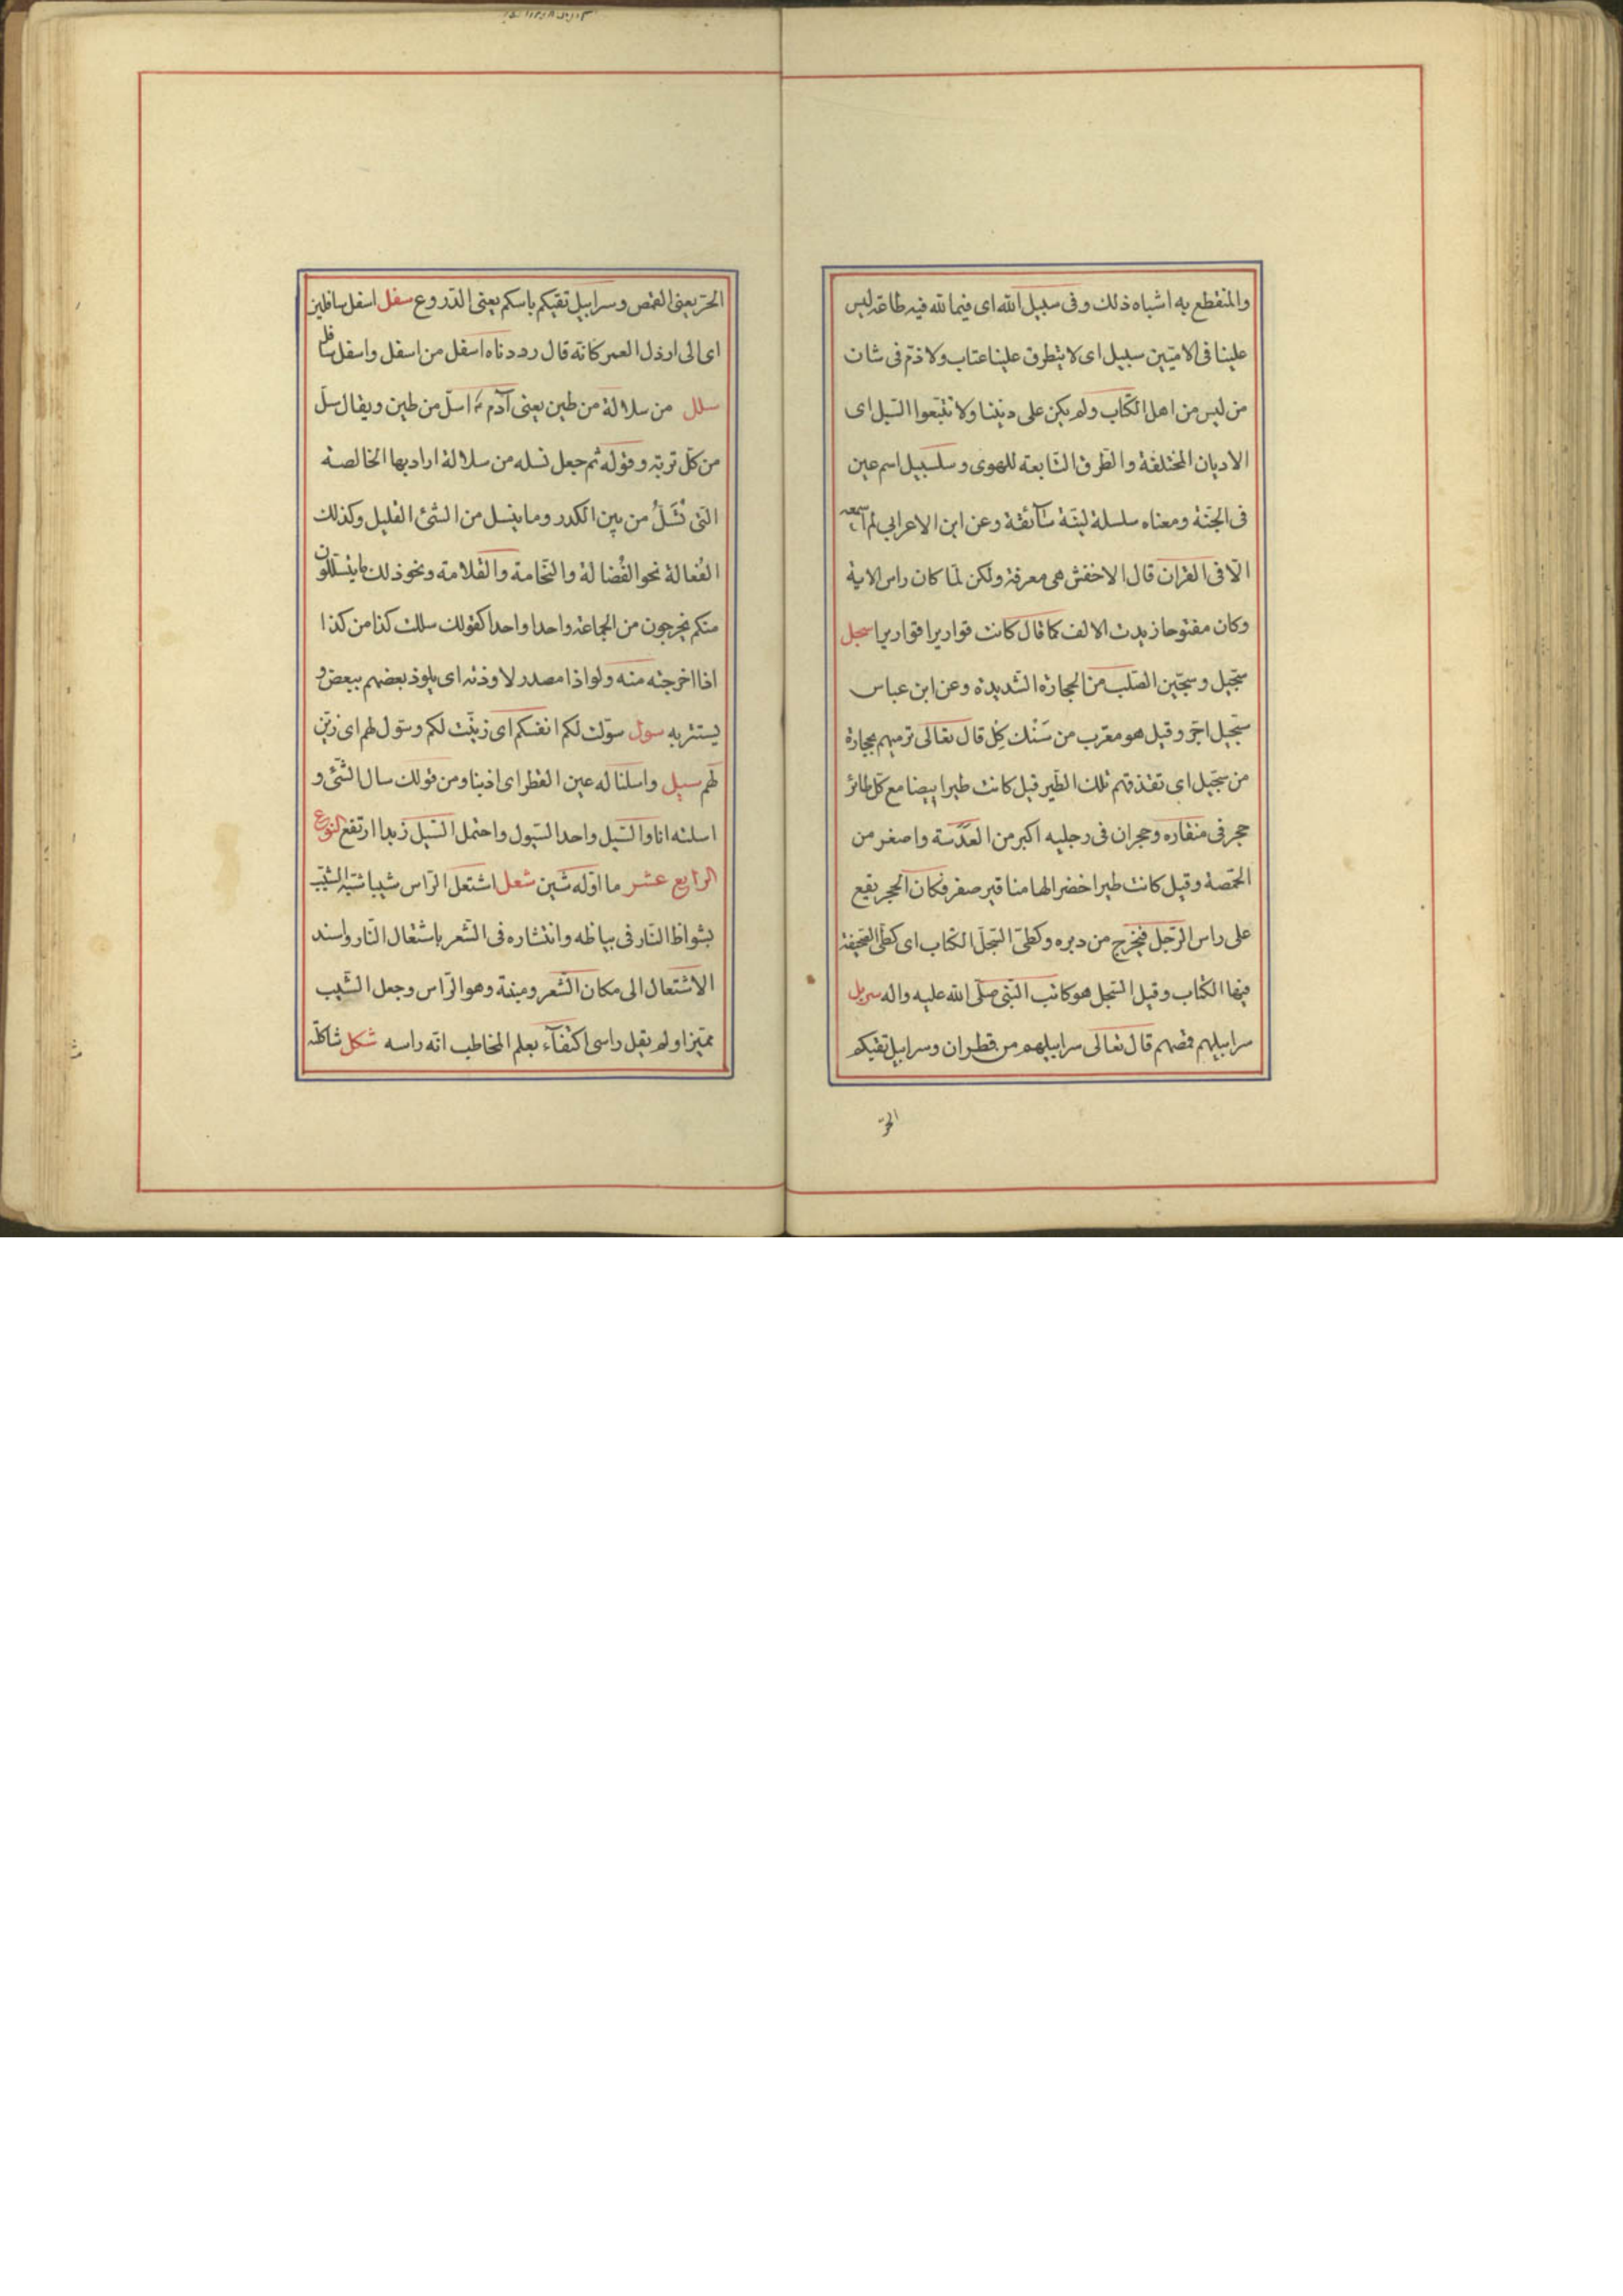 والمنقطع به اشباه ذلك وفى سبيل الله اى فيما لله فيه طاعة ليس
علينا فى الاميّين سبيل اى لا يتطرق علينا عتاب ولا ذمّ فى شان
من ليس من اهل الكتاب ولم يكن على ديننا ولا تتّبعوا السّبل اى
الاديان المختلفة والطّرق التّابعة للهوى وسلسبيل اسم عين
فى الجنّة ومعناه سلسلة ليّنة سآئغة وعن ابن الاعرابي لم اسمعه
الّا فى القران قال الاخفش هى معرفة ولكن لمّا كان راس الاية
وكان مفتوحا زيدت الالف كما قال كانت قواريرا قواريرا سجل
سجّيل وسجّين الصّلب من الحجارة الشديدة وعن ابن عباس
سجّيل اجرّ وقيل هو معرّب من سَنْك كِل قال تعالى ترميهم بحجارة
من سجّيل اى تقذفهم تلك الطّير قيل كانت طيرا بيضا مع كلّ طائر
حجر فى منقاره وحجران فى رجليه اكبر من العَدَسَة واصغر من
الحمّصة وقيل كانت طيرا خضر الها مناقير صفر فكان الحجر يقع
على راس الرّجل فيخرج من دبره وكطىّ السّجلّ الكتاب اى كطىّ الصّحيفة
فيها الكتاب وقيل السّجل هو كاتب النّبى صلّى الله عليه واله سربل
سرابيلهم قمصهم قال تعالى سرابيلهم من قطران وسرابيل تقيكم
الحرّ
الحرّ يعنى القمص وسرابيل تقيكم باسكم يعنى الدّروع سفل اسفل سافلين
اى الى ارذل العمر كانّه قال رددناه اسفل من اسفل واسفل سافل
سلل من سلالة من طين يعنى آدم ع اسلّ من طين ويقال سلّ
من كلّ تربة وقوله ثم جعل نسله من سلالة اراد بها الخالصة
الّتى تُسَلُّ من بين الكدر وما ينسل من الشّئ القليل وكذلك
الفُعالة نحو الفُضالة والنّخامة والقلامة ونحو ذلك ما يتسلّلون
منكم يخرجون من الجماعة واحدا واحدا كقولك سللت كذا من كذا
اذا اخرجته منه ولواذا مصدر لاوذته اى يلوذ بعضهم ببعض و
يستتر به سول سوّلت لكم انفسكم اى زيّنت لكم وسوّل لهم اى زيّن
لهم سيل واسلنا له عين القطر اى اذبنا ومن قولك سال الشّئ و
اسلته انا والسّيل واحد السّيول واحتمل السّيل زبدا ارتفع النوع
الرابع عشر ما اوّله شين شعل اشتعل الرّاس شيبا شبّه الشّيب
بشواظ النّار فى بياضه وانتشاره فى الشّعر باشتعال النّار واسند
الاشتعال الى مكان الشّعر ومنبته وهو الرّاس وجعل الشّيب
مميّزا ولم يقل راسى اكتفآء بعلم المخاطب انّه راسه شكل شاكلته